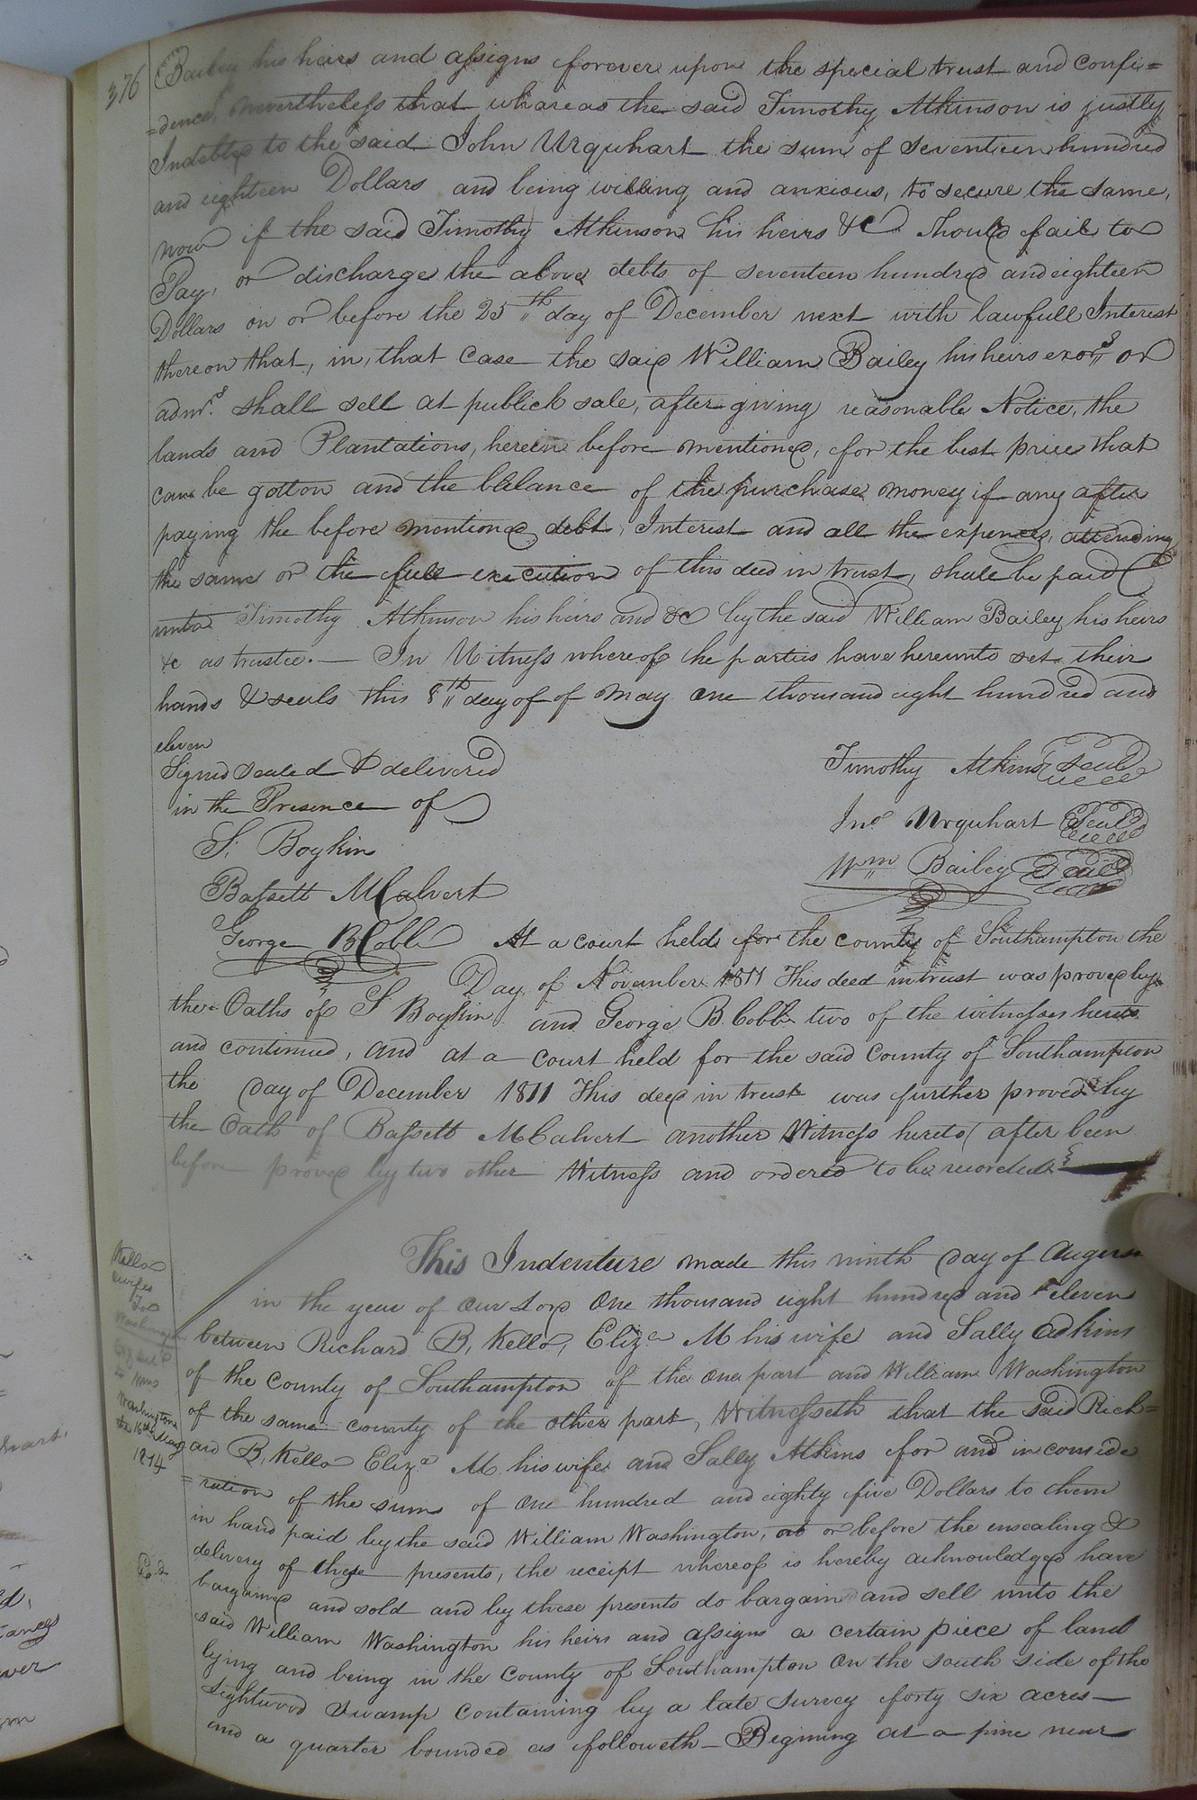 376
Bailey his heirs and assigns forever upon the special trust and confi=
=dence, nevertheless that whareas the said Timothy Atkinson is justly
Indebted to the said John Urquhart the sum of seventeen hundred
and eighteen Dollars and being willing and anxious, to secure the same,
now if the said Timothy Atkinson his heirs &c should fail to
Pay, or discharge the above debts of seventeen hundred and eighteen
Dollars on or before the 25th day of December next with lawfull Interest
thereon that, in, that case the said William Bailey his heirs exors or
admrs shall sell at publick sale, after giving reasonable Notice, the
lands and Plantations, herein before mentioned, for the best price that
can be gotton and the ballance of the purchase money if any after
paying the before mentioned debt, Interest and all the expences, attending
the same or the full execution of this deed in trust, shall be paid
unto Timothy Atkinson his heirs and &c by the said William Bailey his heirs
&c as trustee. — In Witness whereof the parties have hereunto set their
hands & seals this 8th day of of May one thousand eight hundred and
eleven
Signed sealed & delivered
in the Presence of
S. Boykin
Bassett M Calvert
George B Cobb
Timothy Atkins Seal
Jno Urquhart Seal
Wm Bailey Seal
At a court held for the county of Southampton the
Day of November 1811 This deed in trust was proved by
the Oaths of S Boykin and George B. Cobb two of the witnesses hereto
and continued, and at a court held for the said County of Southampton
the day of December 1811 This deed in trust was further proved by
the Oath of Bassett M Calvert another Witness hereto after been
before proved by two other Witness and ordered to be recorded
Kello
wifes
To
Washington
to Mrs
Washington
the 16th May
1814
This Indenture made this ninth day of August
in the year of Our Lord One thousand eight hundred and eleven
between Richard B. Kello, Eliza M his wife and Sally Adkins
of the County of Southampton of the one part and William Washington
of the same county of the other part, Witnesseth that the said Rich=
ard B. Kello Eliza M. his wife and Sally Atkins for and in conside
=ration of the sum of One hundred and eighty five Dollars to them
in hand paid by the said William Washington, at or before the ensealing &
delivery of these presents, the receipt whereof is hereby acknowledged have
bargained and sold and by these presents do bargain and sell unto the
said William Washington his heirs and assigns a certain piece of land
lying and being in the County of Southampton On the south side of the
Lightwood Swamp Containing by a late survey forty six acres —
and a quarter bounded as followeth — Begining at a pine near